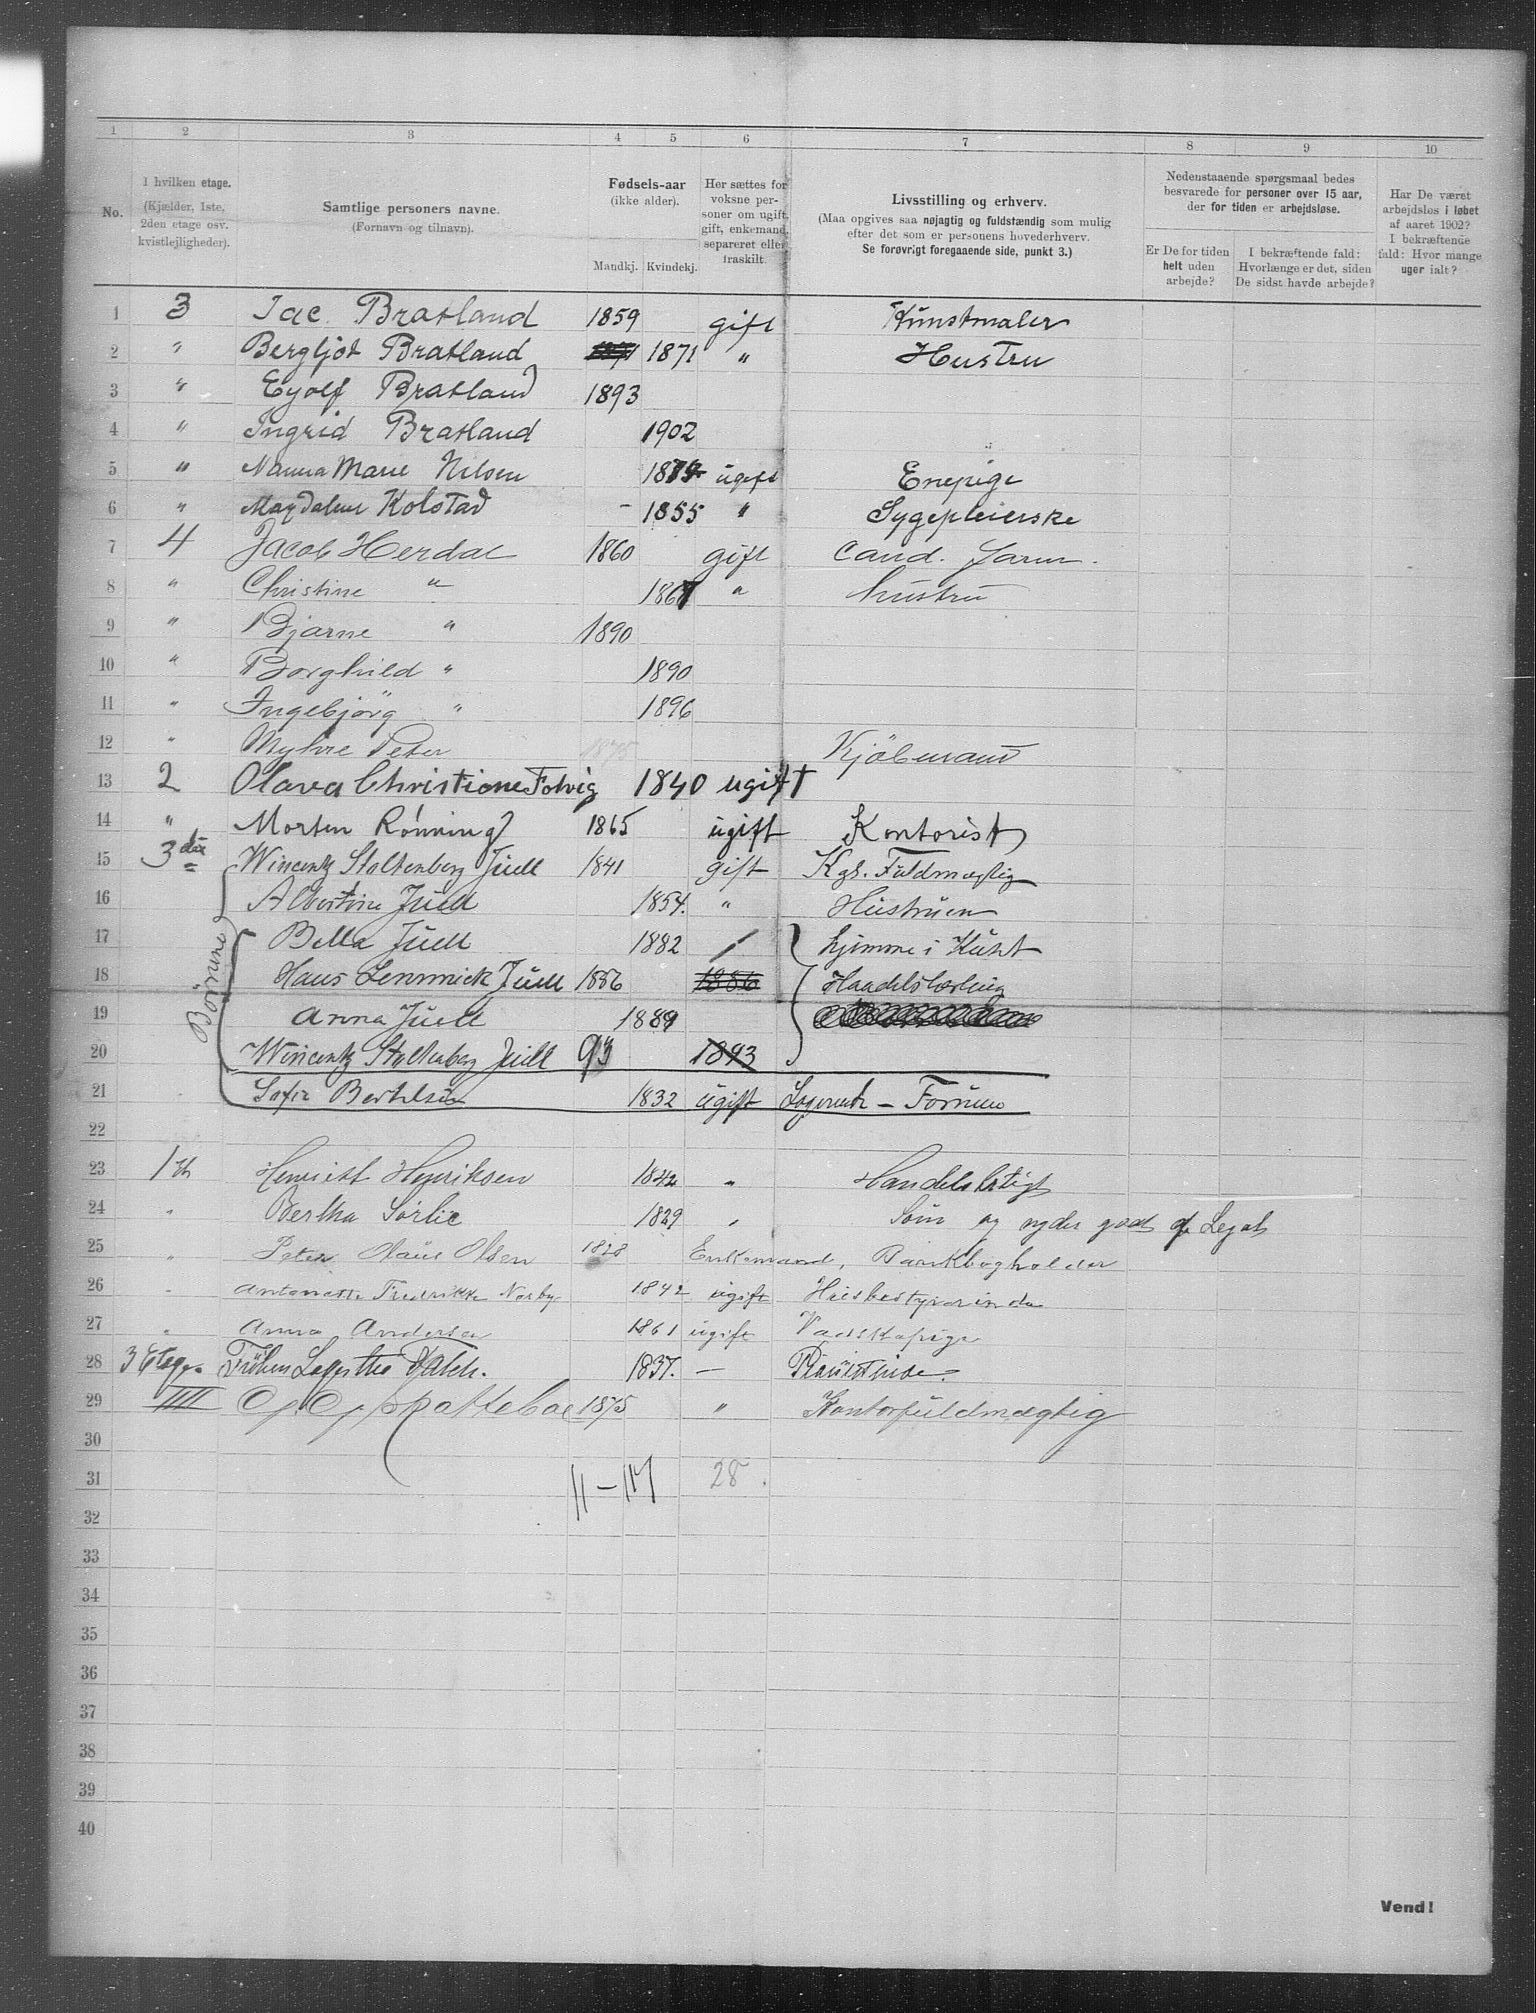 1 2 3 4 5 6 7 8 9 10
No.
I hvilken etage.
(Kjælder, 1ste,
2den etage osv.
kvistlejligheder).
Samtlige personers navne.
(Fornavn og tilnavn).
Fødsels-aar
(ikke alder).
Mandkj. Kvindekj.
Her sættes for
voksne per-
soner om ugift,
gift, enkemand,
separeret eller
fraskilt.
Livsstilling og erhverv.
(Maa opgives saa nøjagtig og fuldstændig som mulig
efter det som er personens hovederhverv.
Se forøvrigt foregaaende side, punkt 3.)
Nedenstaaende spørgsmaal bedes
besvarede for personer over 15 aar,
der for tiden er arbejdsløse.
Er De for tiden
helt uden
arbejde?
I bekræftende fald:
Hvorlænge er det, siden
De sidst havde arbejde?
Har De været
arbejdsløs i løbet
af aaret 1902?
I bekræftende
fald: Hvor mange
uger ialt?
1 3 Jac. Bratland 1859 gift Kunstmaler
2 " Bergljot Bratland 1871 " Hustru
3 " Eyolf Bratland 1893
4 " Ingrid Bratland 1902
5 " Nanna Marie Nilsen ugift Enepige
6 " Magdalene Kolstad - 1855 " Sygepleierske
7 4 Jacob Herdal 1860 gift Cand. farm.
8 " Christine " " hustru
9 " Bjarne " 1890
10 " Borghild " 1890
11 " Ingebjörg " 1896
12 " Myhre Peter 1875 Kjöbmand
13 2 Olava Christiane Fotvig 1840 ugift
14 " Morten Rönning 1865 ugift Kontorist
15 3die Wincentz Stoltenberg Juell 1841 gift Kgl. Fuldmægtig
16 Albertine Juell 1854. " Hustruen
Börnene
17 Bella Juell 1882 / hjemme i Huset
18 Hans Lemmick Juell 1886 1886 Handelslærling
19 Anna Juell 1889
20 Wincentz Stoltenberg Juell 93 1893
21 Sofie Berthelsen 1832 ugift Logerende - Formue
22
23 1 th Henriett Henriksen 1842 " Handelsbetigt
24 " Bertha Sörlie 1829 " Söm og nyder godt af Legat
25 " Peter Olaus Olsen 1828 Enkemand, Bankbogholder
26 " Antonette Fredrikke Norby 1842 ugift Husbestyrerinde
27 " Anna Andersen 1861 ugift Vadskepige
28 3 Etage Fröken 1837. -
29 IIII 1875 " Kontorfuldmægtig
30
31 11 - 17 28.
32
33
34
35
36
37
38
39
40
Vend!